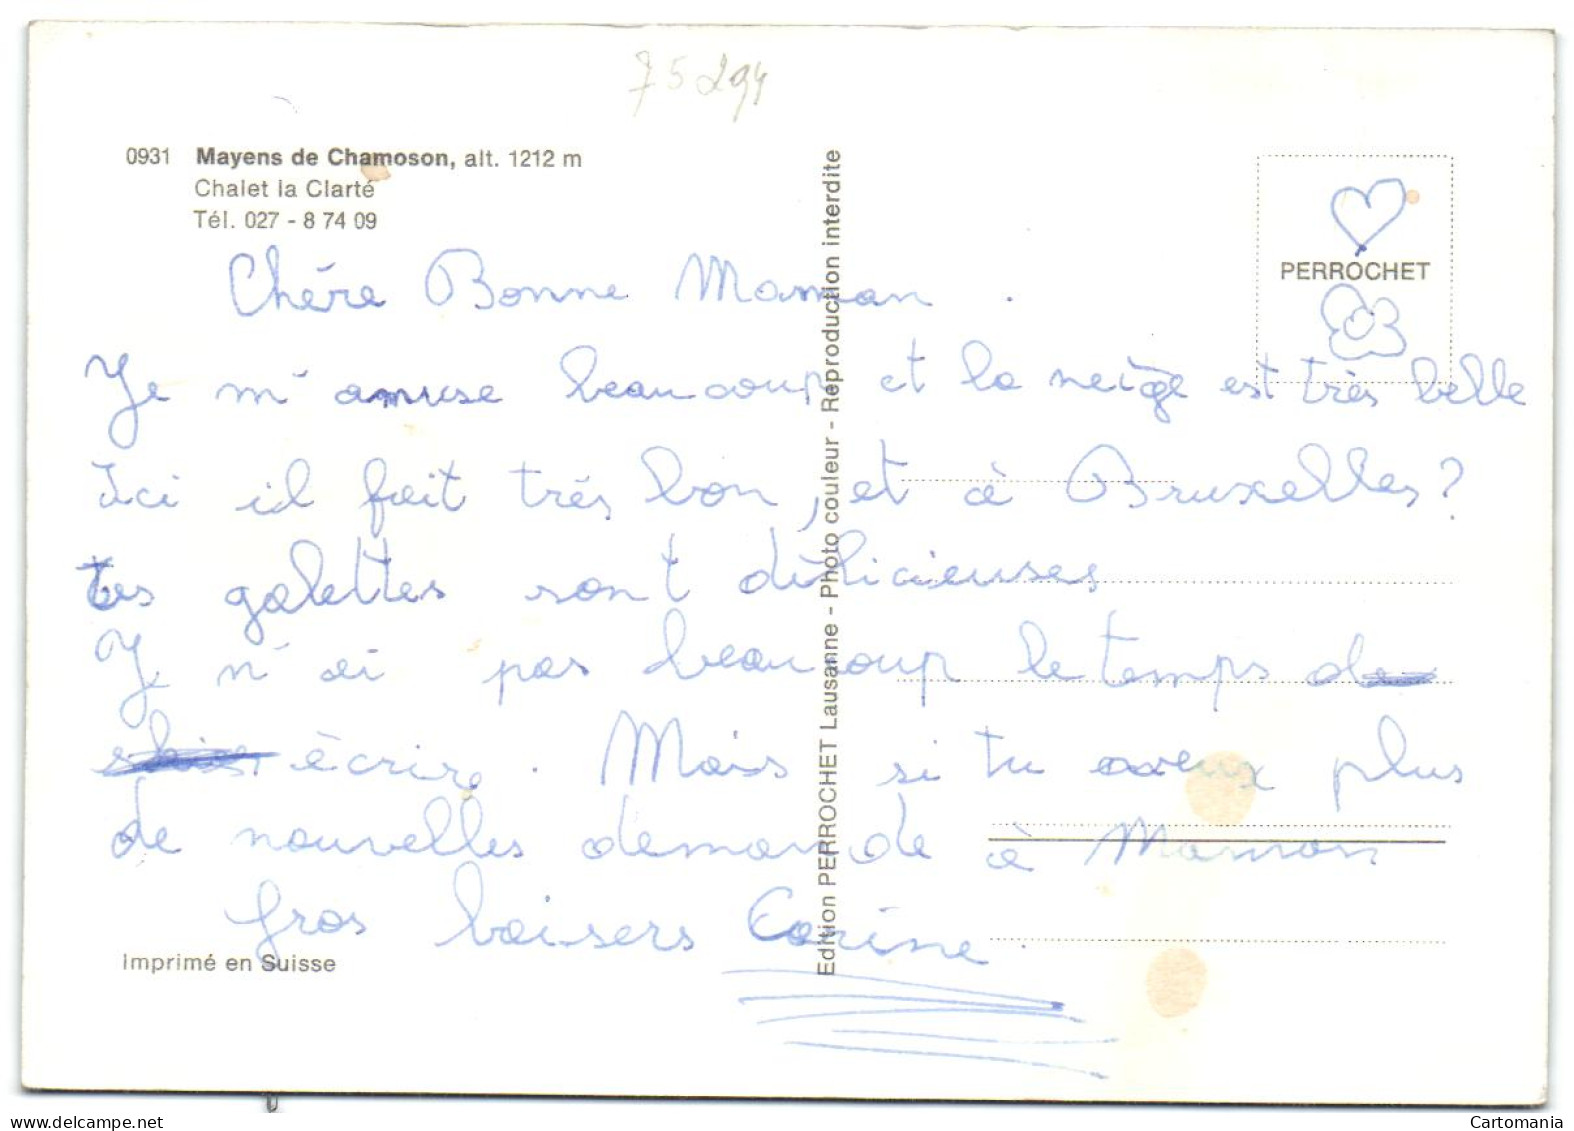 75294
0931 Mayens de Chamoson, alt. 1212 m
Chalet la Clarté
Tél. 027 - 8 74 09
PERROCHET
Edition PERROCHET Lausanne - Photo couleur - Reproduction interdite
Chére Bonne Maman .
Je m'amuse beaucoup et la neige est très belle
Ici il fait trés bon, et à Bruxelles?
tes galettes sont délicieuses
Je n'ai pas beaucoup le temps d
écrire. Mais si tu aveux plus
de nouvelles demande à Maman
gros baisers Corine.
Imprimé en Suisse
delcampe.net
Cartomania